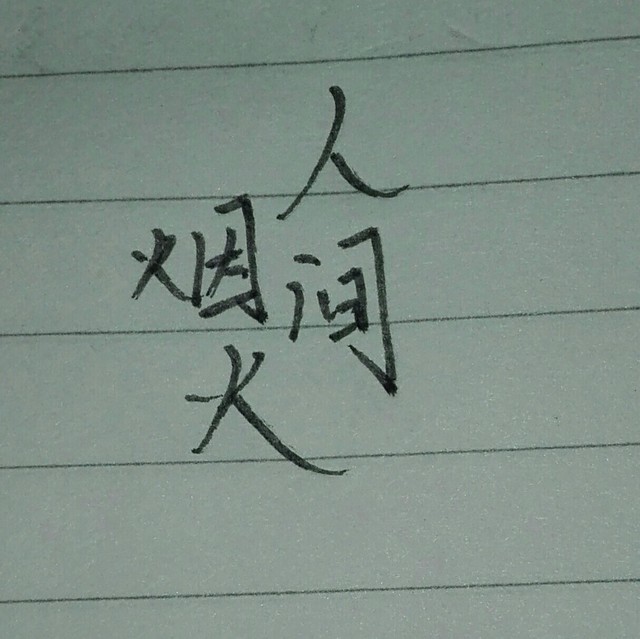 人间
烟火